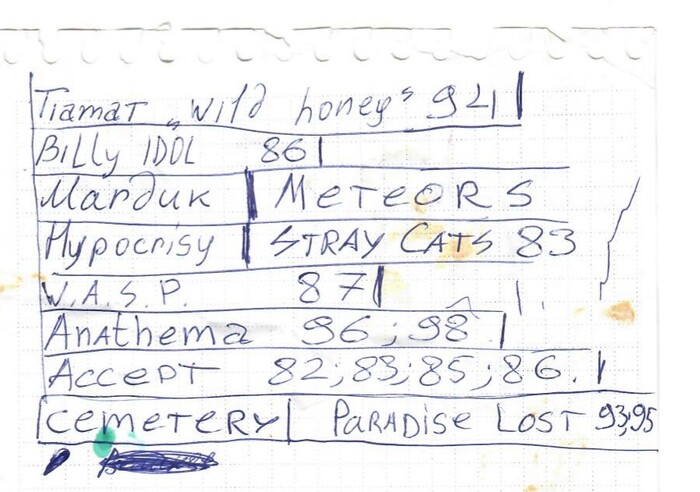 Tiamat „wild honey" 94
Billy IDOL 86
Marduk | METEORS
Hypocrisy | STRAY CATS 83
W.A.S.P. 87
Anathema 96; 98
Accept 82; 83; 85; 86.
CEMETERY | PARADISE LOST 93;95